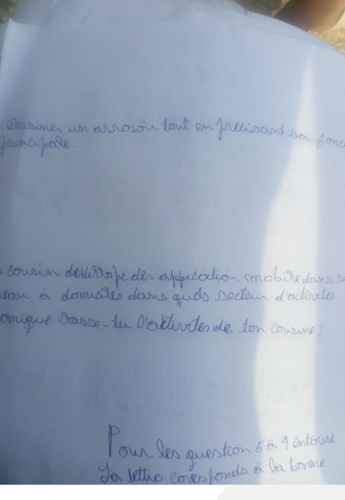 . Dessiner un arrosoir tout en precisant sa fonc
principale.
cousin devellope des application mobile dans s
eau à domicilés dans quels secteur d'activités
omique classe-tu l'activités de ton cousin ?
Pour les question 5 à 9 entoure
la lettre corespondz à la bonne